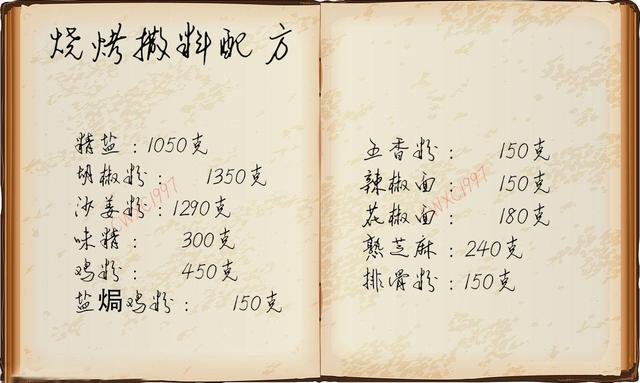 烧烤撒料配方
精盐：1050克
胡椒粉：1350克
沙姜粉：1290克
味精：300克
鸡粉：450克
盐焗鸡粉：150克
五香粉：150克
辣椒面：150克
花椒面：180克
熟芝麻：240克
排骨粉：150克